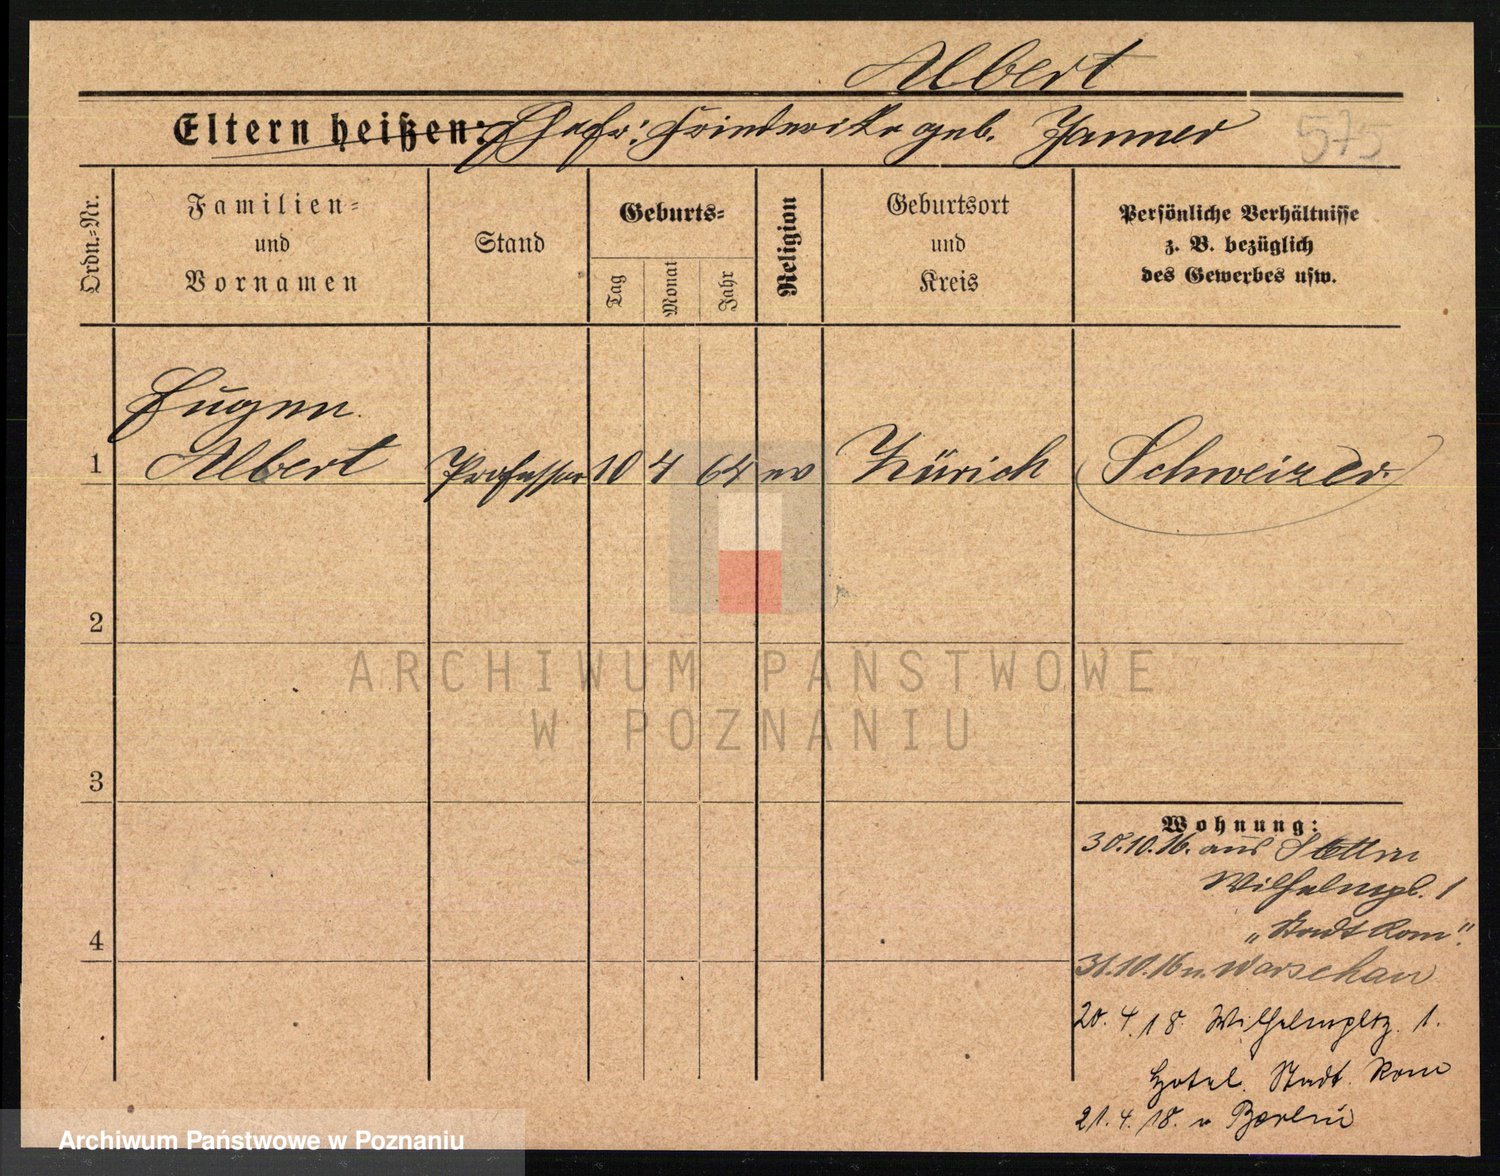 Albert
Eltern heißen: Ehefr: Friederike geb. Janner
575
Ordn.=Nr.
Familien=
und
Vornamen
Stand
Geburts=
Tag
Monat
Jahr
Religion
Geburtsort
und
Kreis
Persönliche Verhältnisse
z. B. bezüglich
des Gewerbes usw.
Eugen
1 Albert Professor 10 4 64 ev Zürich Schweizer
2
3
4
ARCHIWUM PAŃSTWOWE
W POZNANIU
Wohnung:
30.10.16. aus Stettin
Wilhelmspl. 1
„Stadt Rom"
31.10.16 n. Warschau
20.4.18. Wilhelmspltz. 1.
Hotel. Stadt. Rom
21.4.18. n Berlin
Archiwum Państwowe w Poznaniu